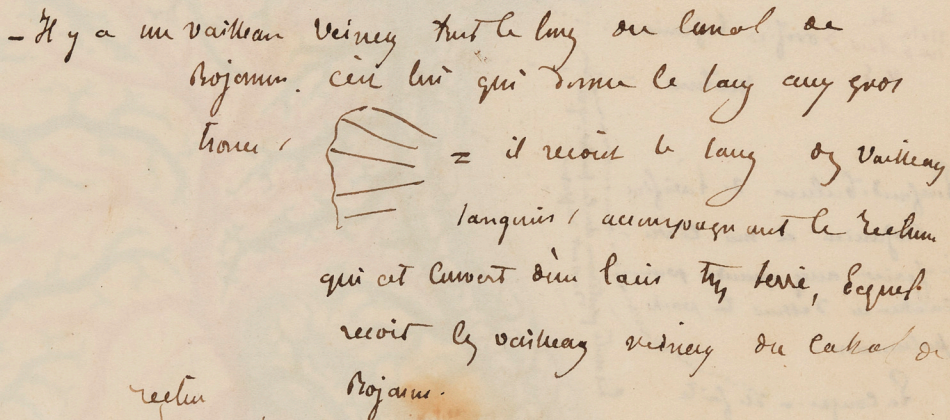 – Il y a un vaisseau veineux tout le long du canal de
Bojanus. c'est lui qui donne le sang aux gros
troncs
= il reçoit le sang des vaisseaux
sanguins accompagnant le rectum
qui est couvert d'un lacis très serré, lequel
reçoit les vaisseaux veineux du canal de
Bojanus.
rectum